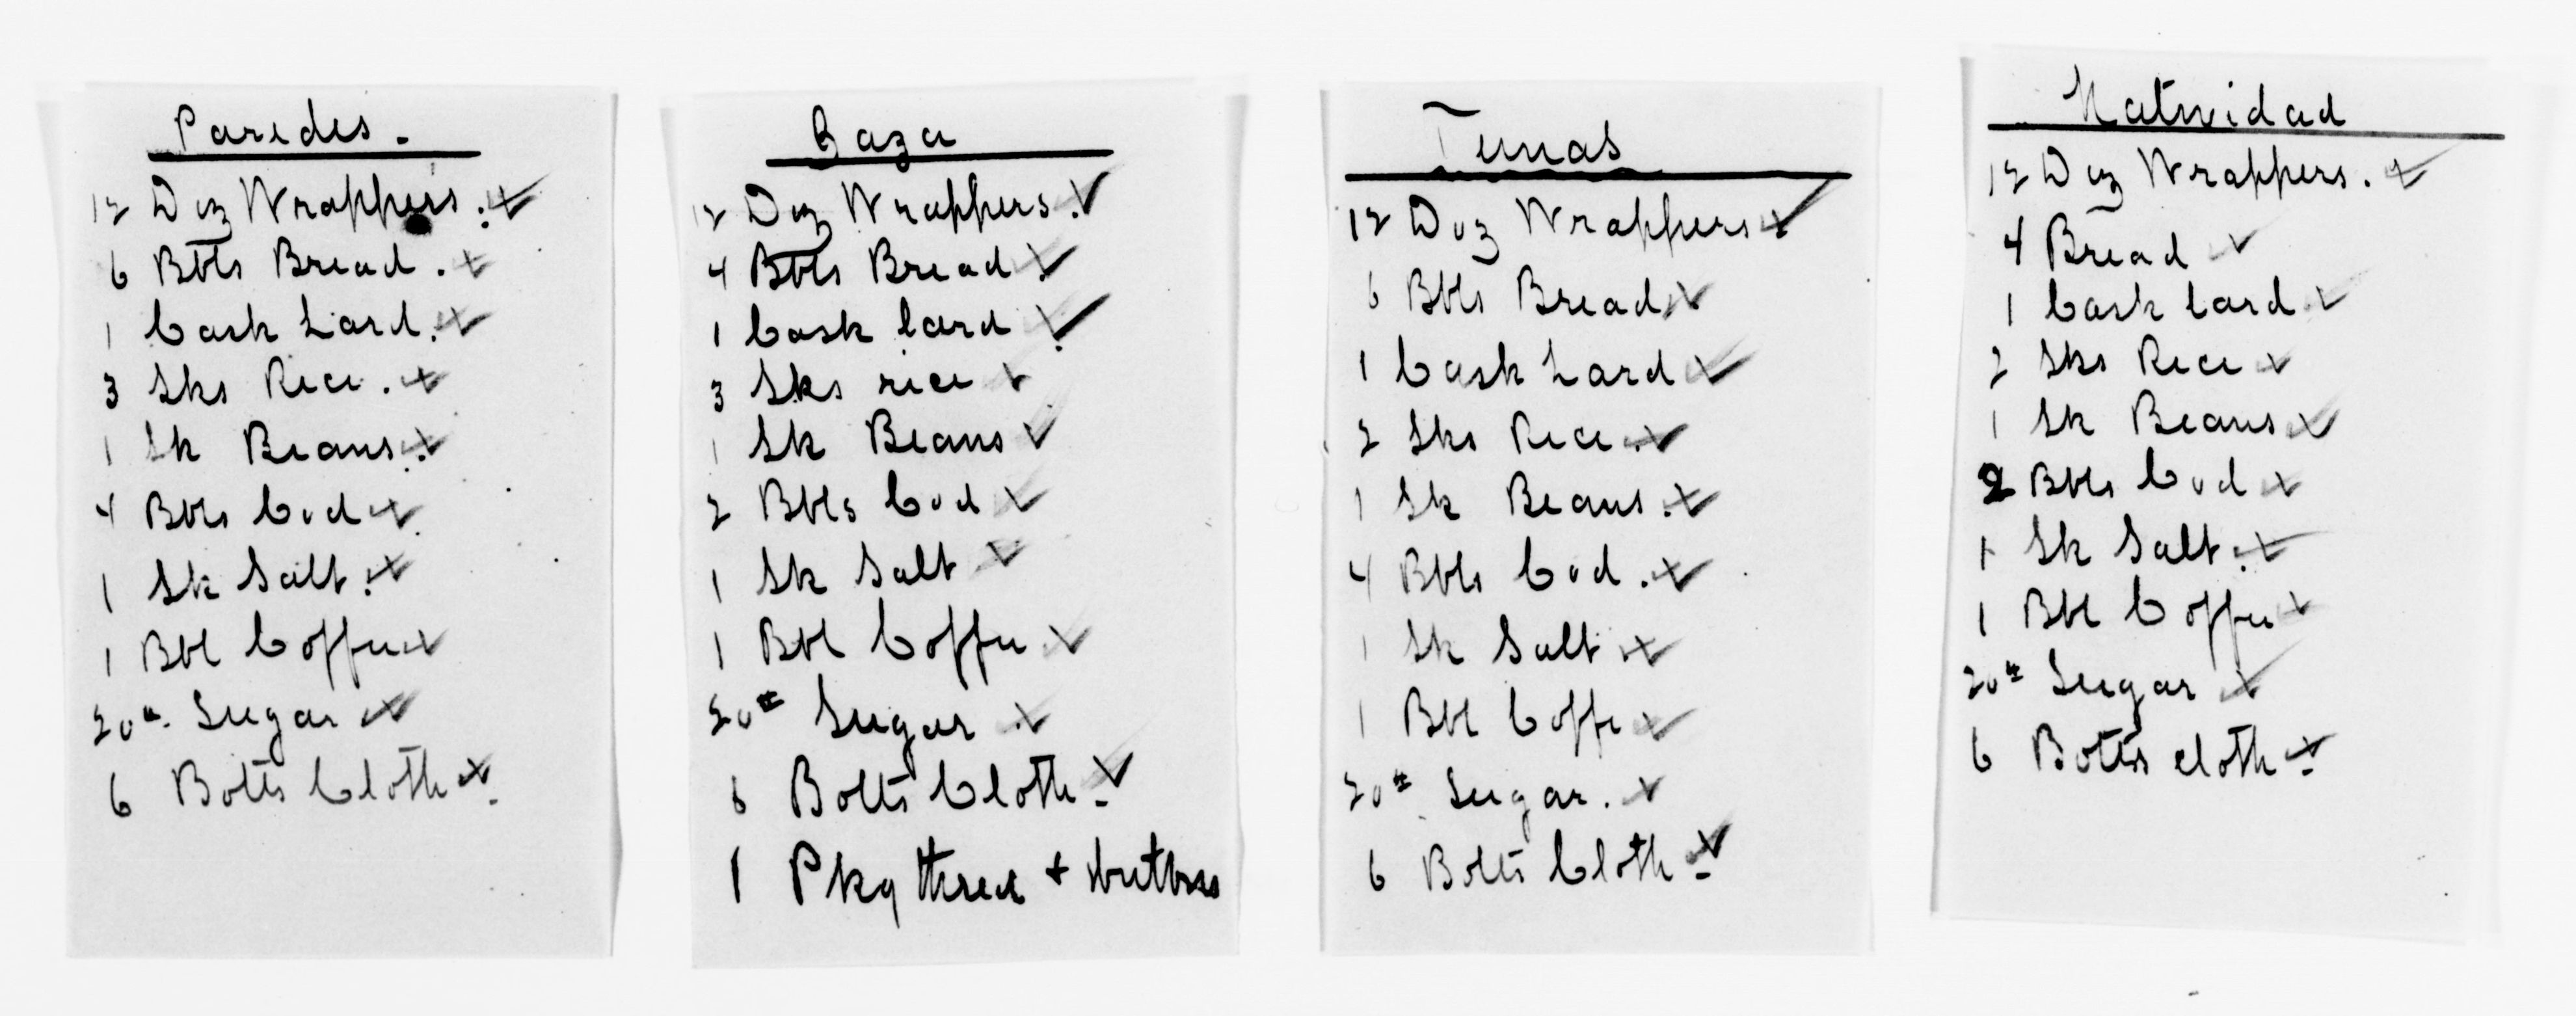 Paredes.
12 Doz Wrappers.
6 Bbls Bread.
1 Cask Lard.
3 Sks Rice.
1 Sk Beans.
4 Bbls Cod
1 Sk Salt.
1 Bbl Coffee
20# Sugar
6 Bolts Cloth
Baza
12 Doz Wrappers.
4 Bbls Bread
1 Cask lard
3 Sks rice
1 Sk Beans
2 Bbls Cod
1 Sk Salt
1 Bbl Coffee
20# Sugar
6 Bolts Cloth
1 Pkg thread + buttons
Tunas
12 Doz Wrappers
6 Bbls Bread
1 Cask Lard
2 Sks Rice
1 Sk Beans.
4 Bbls Cod.
1 Sk Salt
1 Bbl Coffe
20# Sugar.
6 Bolts Cloth
Natividad
12 Doz Wrappers.
4 Bread
1 Cask Lard
2 Sks Rice
1 Sk Beans
2 Bbls Cod
1 Sk Salt.
1 Bbl Coffee
20# Sugar
6 Bolts cloth